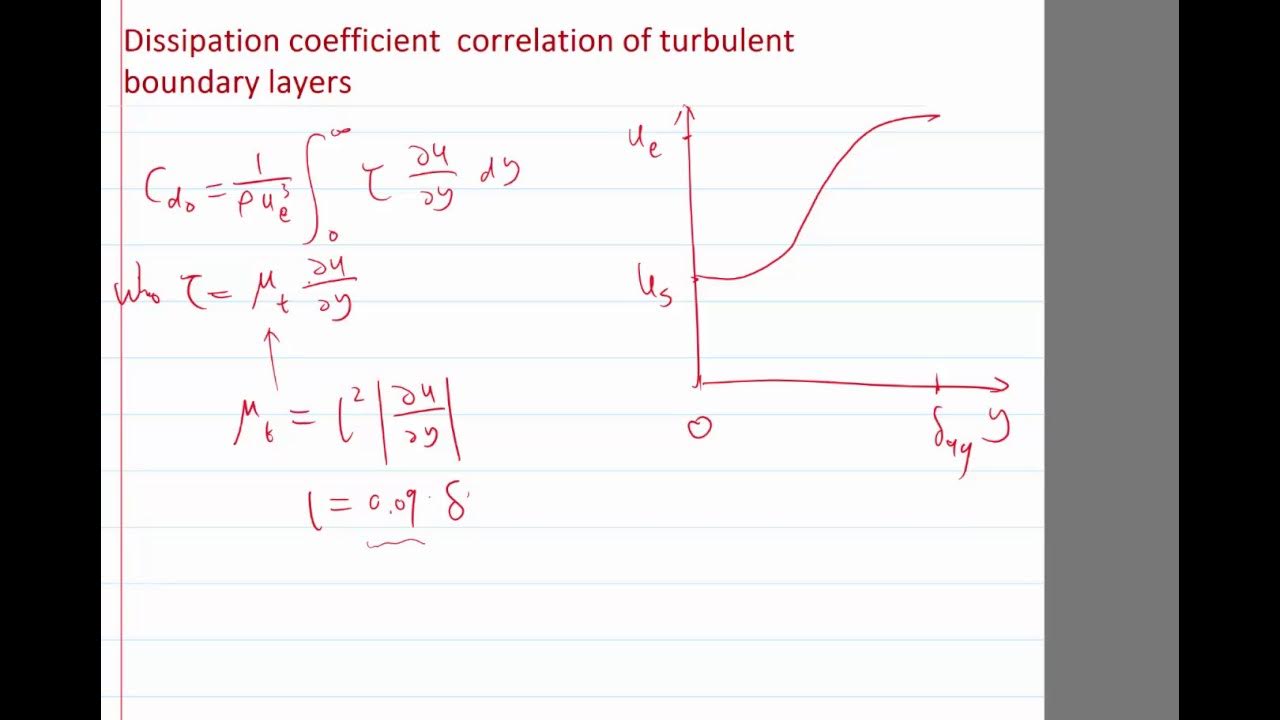 Dissipation coefficient correlation of turbulent
boundary layers
C_{d_0} = \frac{1}{ρ u_e^3} \int_0^∞ τ \frac{∂u}{∂y} dy
τ = μ_t \frac{∂u}{∂y}
μ_t = l^2 \left| \frac{∂u}{∂y} \right|
l = 0.09 · δ
u_e
u_s
0
δ_{99} y